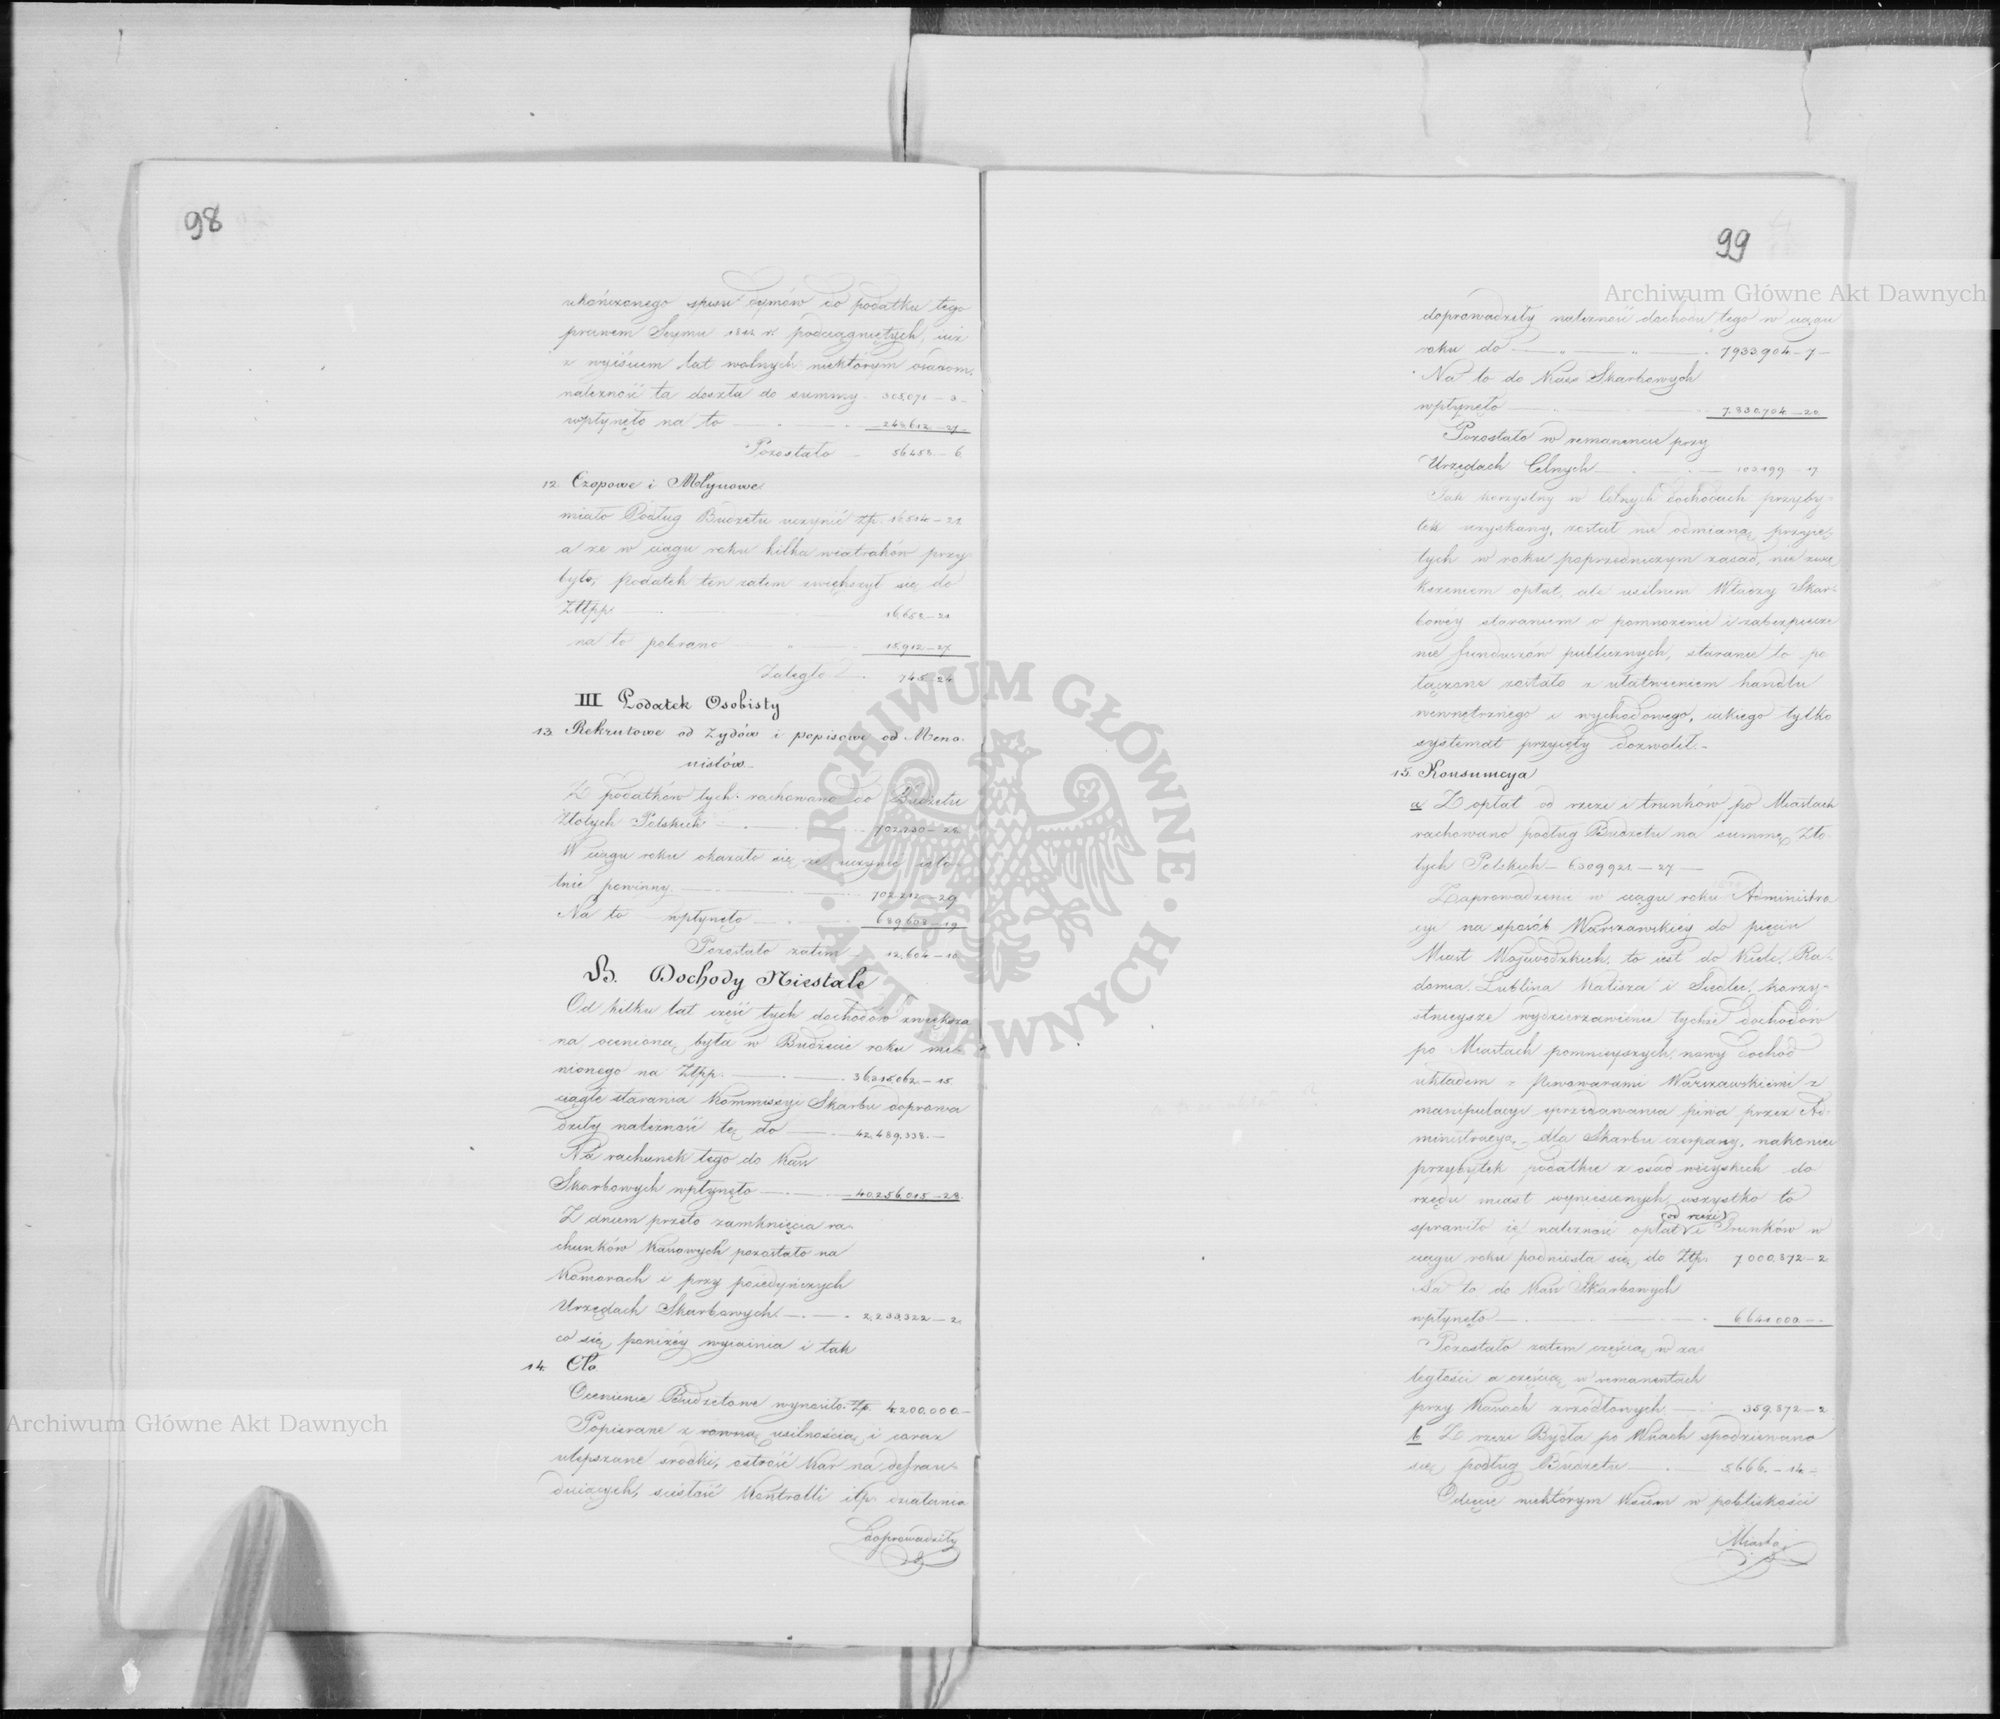 98
ukończonego spisu dymów do podatku tego
prawem Seymu 1812 r. podciągniętych, iuż
z wyiściem lat wolnych niektórym osadom,
należność ta doszła do summy - 305,071 - 3 -
wpłynęło na to — 248612 - 27 -
Pozostało — 56458 - 6
12. Czopowe i Młynowe
miało Podług Budżetu uczynić złp. 16504 - 21
a że w ciągu roku kilka wiatraków przy-
było, podatek ten zatem zwiększył się do
Złłpp — 16,658 - 21
na to pobrano — 15,912 - 27
Zaległo — 745 - 24
III Podatek Osobisty
13. Rekrutowe od Żydów i popisowe od Meno-
nistów. -
Z podatków tych rachowano do Budżetu
Złotych Polskich — 702,230 - 28
W ciągu roku okazało się że uczynić isto-
tnie powinny. — 702,212 - 29
Na to wpłynęło — 689,608 - 19
Pozostało zatem — 12,604 - 10
B. Dochody Niestałe
Od kilku lat część tych dochodów zwiększa
na oceniona była w Budżecie roku mie-
nionego na Złpp. — 36,215,062. - 15
ciągłe starania Kommissyi Skarbu doprowa
dziły należność tę do — 42,489,338. -
Na rachunek tego do Kass
Skarbowych wpłynęło — 40,256,015 - 28.
Z dniem przeto zamknięcia ra-
chunków Kassowych pozostało na
Komorach i przy poiedyńczych
Urzędach Skarbowych — 2,233,322 - 2.
co się poniżéy wyiaśnia i tak
14. Cło
Ocenienie Budżetowe wynosiło złp. 4,200,000. -
Popierane z równą usilnością i coraz
ulepszane środki, ostrość kar na defrau-
duiących, ścisłość Kontrolli itp. działania
doprowadziły
99
doprowadziły należność dochodu tego w ciągu
roku do — 7933,904 - 7 -
Na to do Kass Skarbowych
wpłynęło — 7,830,704 - 20
Pozostało w remanencie przy
Urzędach Celnych — 103,199 - 17
Tak korzystny w celnych dochodach przyby-
tek uzyskany, został nie odmianą przyię-
tych w roku poprzedniczym zasad, nie zwię
kszeniem opłat, ale usilnem Władzy Skar-
bowéy staraniem o pomnożenie i zabezpiecze
nie funduszów publicznych, staranie to po
łączone zostało z ułatwieniem handlu
wewnętrznego i wychodowego, iakiego tylko
systemat przyięty dozwolił. -
15. Konsumcya
a Z opłat od rzezi i trunków po Miastach
rachowano podług Budżetu na summę Zło-
tych Polskich - 6309921 - 27 —
Zaprowadzenie w ciągu roku Administra
cyi na sposób Warszawskiéy do pięciu
Miast Wojewódzkich, to iest do Kielc, Ra-
domia, Lublina Kalisza i Siedlec, korzy-
stnieysze wydzierżawienie tychże dochodów
po Miastach pomnieyszych, nowy dochód
układem z Piwowarami Warszawskiemi z
manipulacyi sprzedawania piwa przez Ad-
ministracyą dla Skarbu czerpany, nakoniec
przybytek podatku z osad wieyskich do
rzędu miast wyniesionych, wszystko to
sprawiło iż należność opłat (od rzezi) i Trunków w
ciągu roku podniosła się do Złp. 7,000,872 - 2
Na to do Kass Skarbowych
wpłynęło — 6641000 -
Pozostało zatem częścią w za-
ległości a częścią w remanentach
przy Kassach źrzodłowych — 359,872 - 2
b Z rzezi Bydła po Wsiach spodziewano
się podług Budżetu — 5,666. - 14 -
Odięcie niektórym Wsiom w pobliskości
Miasta
Archiwum Główne Akt Dawnych
Archiwum Główne Akt Dawnych
ARCHIWUM GŁÓWNE AKT DAWNYCH